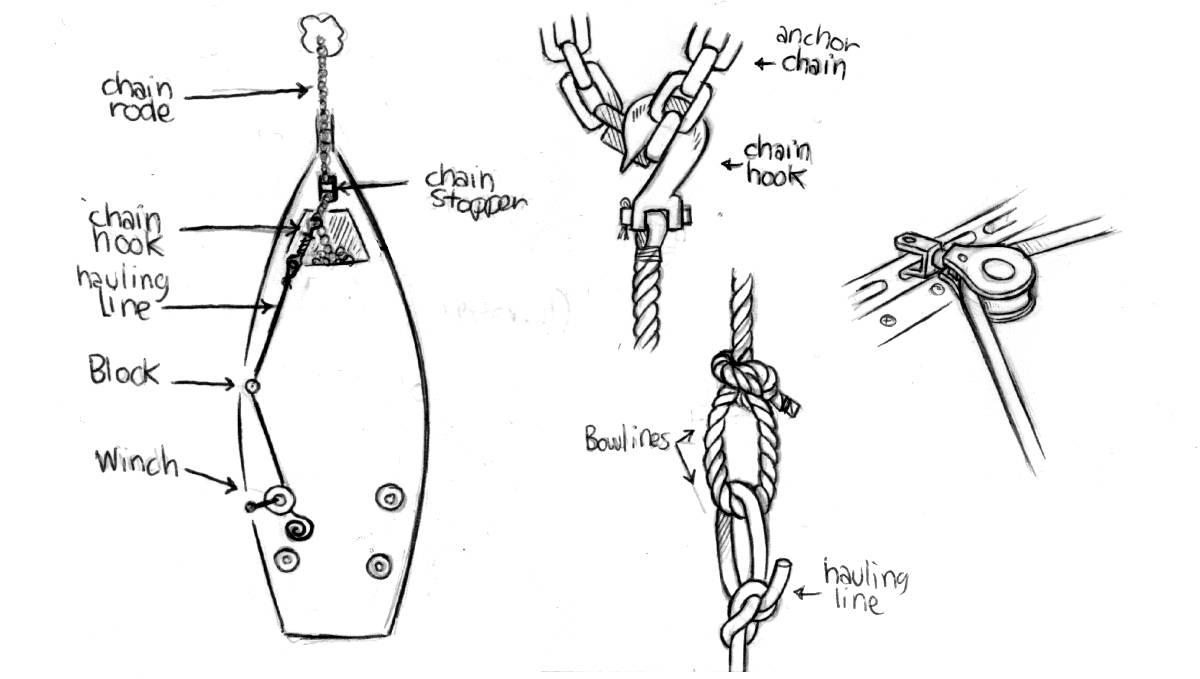 chain
rode
chain
stopper
chain
hook
hauling
line
Block
Winch
anchor
chain
chain
hook
Bowlines
hauling
line